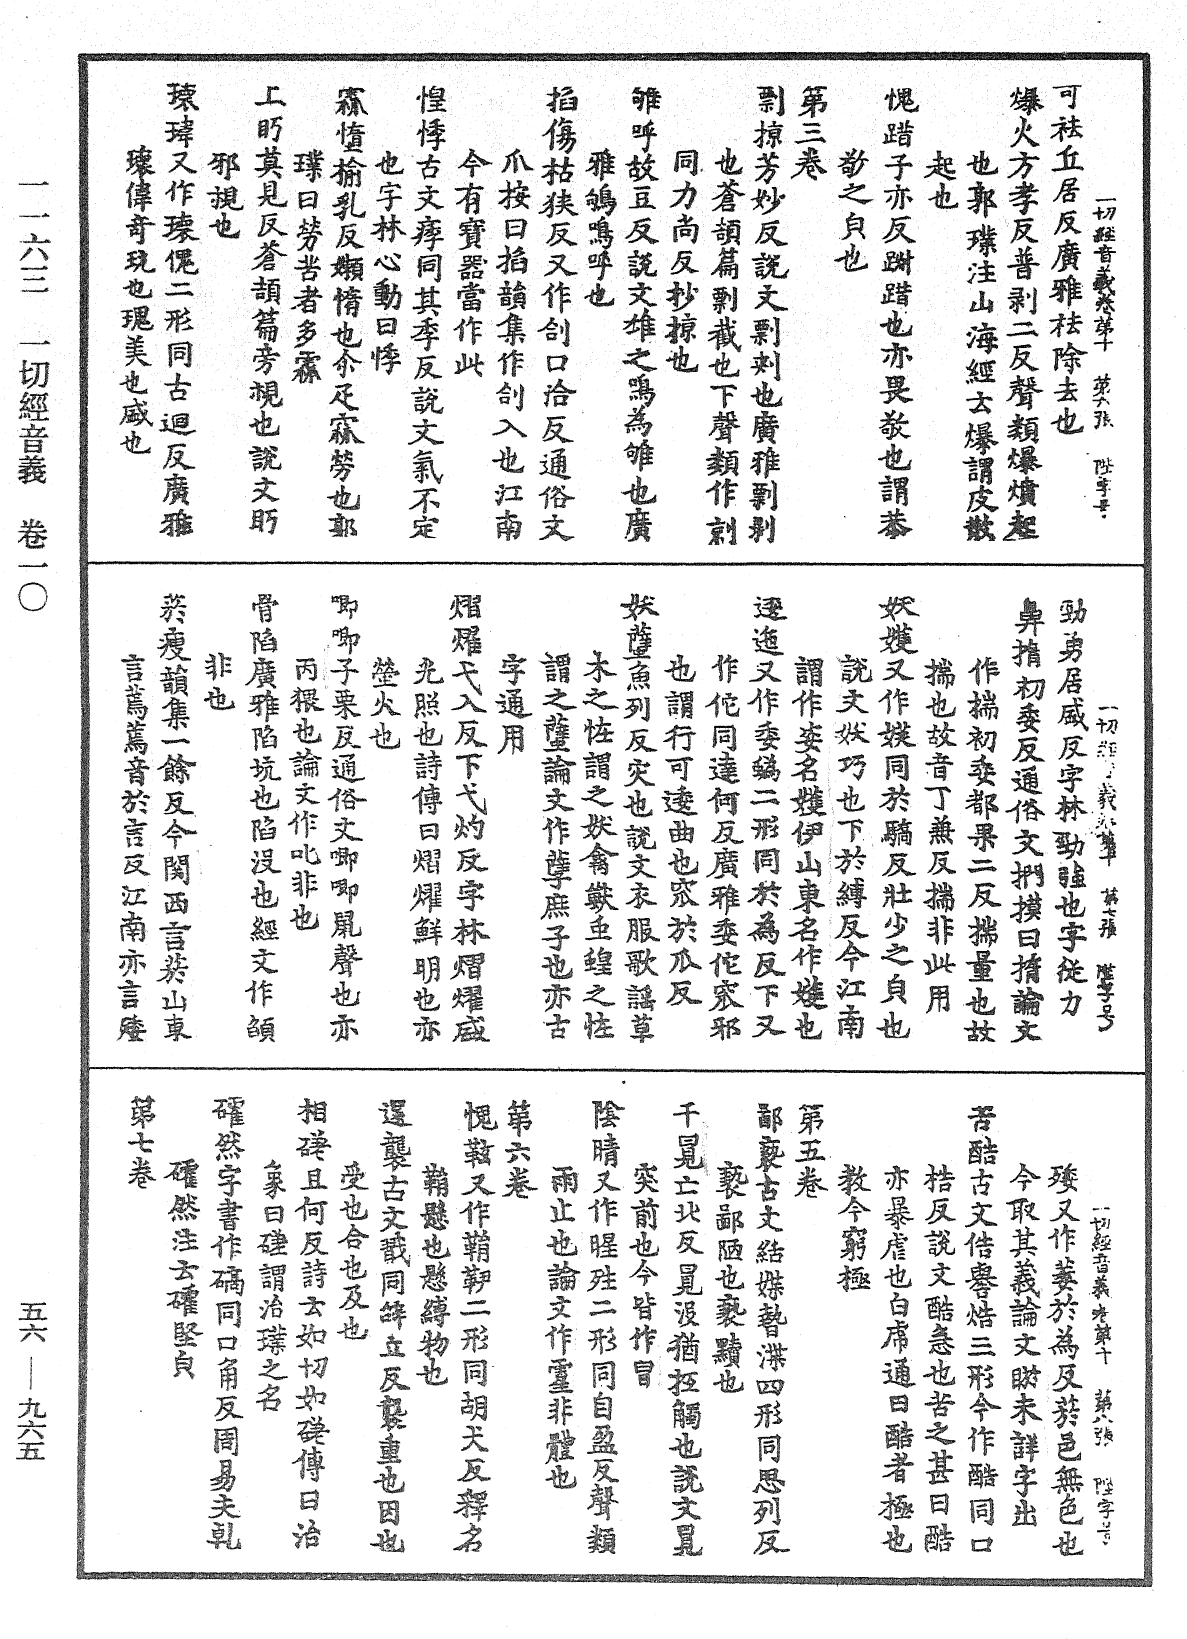 一一六三　一切經音義　卷一〇
五六—九六五
一切經音義卷第十　第六張　陛字号
可袪丘居反廣雅袪除去也
爆火方孝反普剥二反聲類爆墳起
也郭璞注山海經云爆謂皮散
起也
愧踖子亦反踧踖也亦畏敬也謂恭
敬之皃也
第三卷
剽掠芳妙反說文剽刾也廣雅剽剥
也蒼頡篇剽截也下聲類作剠
同力尚反抄掠也
雊呼故豆反說文雄之鳴為雊也廣
雅鴝鳴呼也
掐傷枯狹反又作㓣口洽反通俗文
爪按曰掐韻集作㓣入也江南
今有寶器當作此
惶悸古文痵同其季反說文氣不定
也字林心動曰悸
窳憜揄乳反嬾惰也尒疋窳勞也郭
璞曰勞苦者多窳
上眄莫見反蒼頡篇旁視也說文眄
邪視也
瓌瑋又作瓌傀二形同古迴反廣雅
瓌偉奇玩也瑰美也盛也
一切經音義卷第十　第七張　陛字号
勁勇居盛反字林勁強也字從力
鼻揣初委反通俗文捫摸曰揣論文
作揣初委都果二反揣量也故
揣也故音丁兼反揣非此用
妖㜰又作媖同於驕反壯少之皃也
說文妖巧也下於縛反今江南
謂作姿名㜰伊山東名作㜰也
逶迤又作委蟡二形同於為反下又
作佗同達何反廣雅委佗窊邪
也謂行可逶曲也窊於瓜反
妖孽魚列反灾也說文衣服歌謡草
木之恠謂之妖禽獸虫蝗之恠
謂之孽論文作孽庶子也亦古
字通用
熠燿弋入反下弋灼反字林熠燿盛
光照也詩傳曰熠燿鮮明也亦
螢火也
唧唧子栗反通俗文唧唧鼠聲也亦
丙猥也論文作叱非也
骨陷廣雅陷坑也陷没也經文作䪼
非也
菸瘦韻集一餘反今関西言菸山東
言蔫蔫音於言反江南亦言殗
一切經音義卷第十　第八張　陛字号
殘又作萎於為反菸邑無色也
今取其義論文䁋未詳字出
苦酷古文俈嚳焅三形今作酷同口
梏反說文酷急也苦之甚曰酷
亦暴虐也白虎通曰酷者極也
教令窮極
第五卷
鄙褻古文絬媟㬪渫四形同思列反
褻鄙陋也褻黷也
干冒亡北反冒没猶抵觸也說文冒
突前也今皆作冒
陰晴又作暒殅二形同自盈反聲類
雨止也論文作霻非體也
第六卷
愧鞊又作鞘靷二形同胡犬反釋名
鞘懸也懸縛物也
還襲古文戩同辝立反襲重也因也
受也合也及也
相磋且何反詩云如切如磋傳曰治
象曰磋謂治璞之名
確然字書作碻同口角反周易夫乹
確然注云確堅皃
第七卷